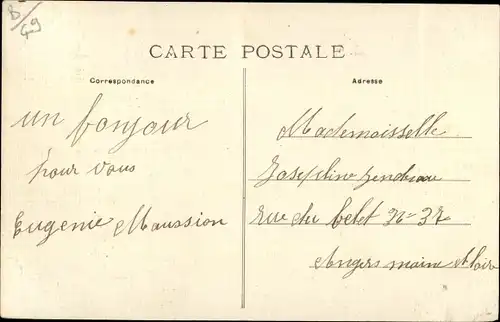 B/49
CARTE POSTALE
Correspondance
un bonjour
pour vous
Eugenie Maussion
Adresse
Mademoisselle
Josephine Gendreau
rue du belet N= 37
Angers maine & loire